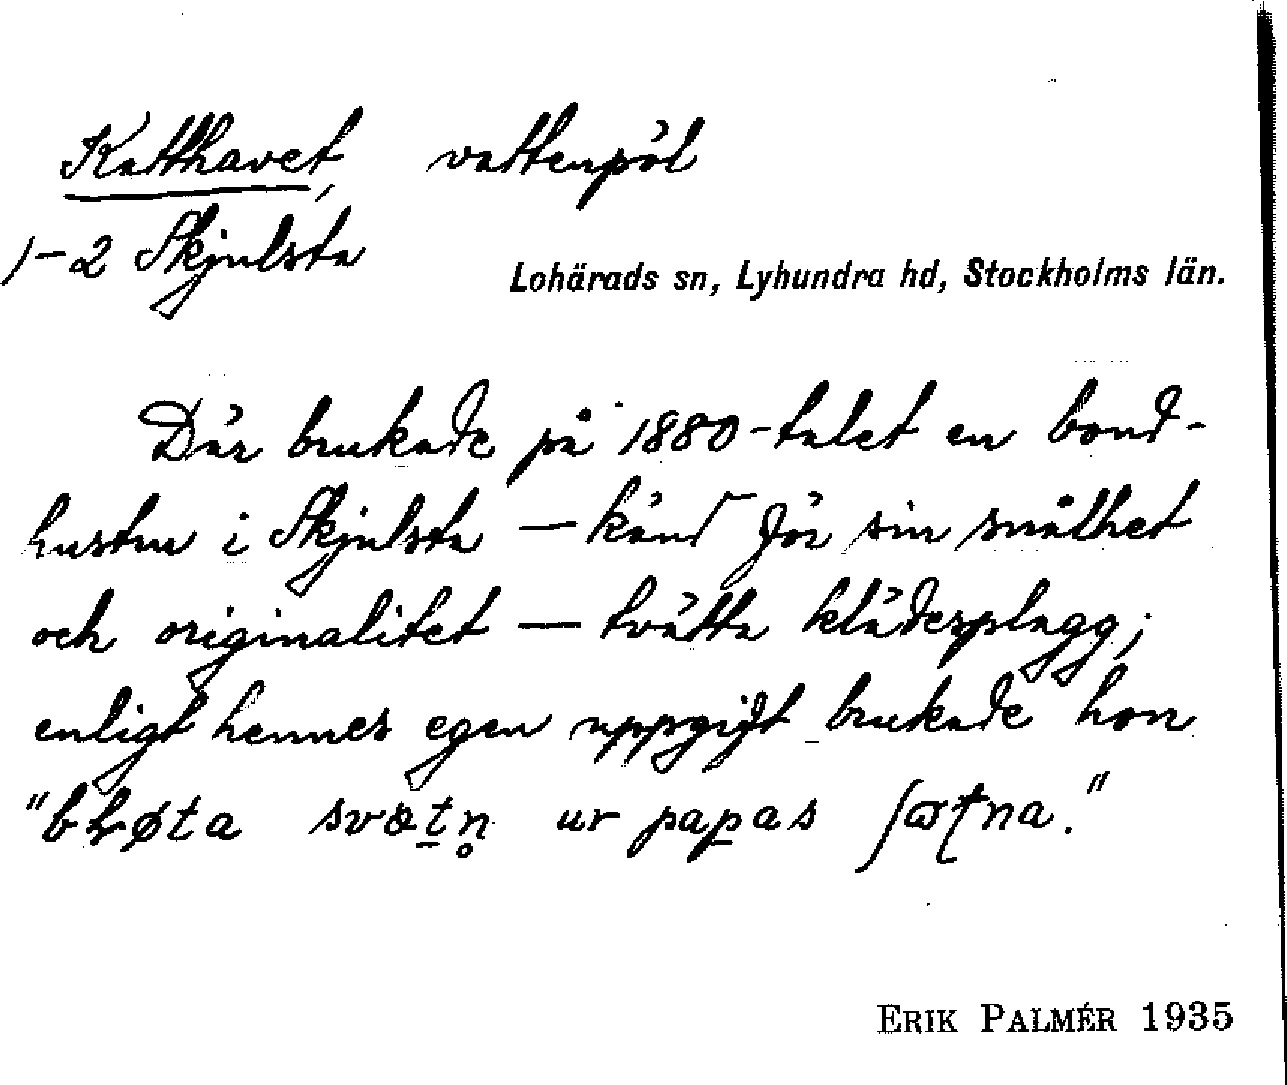 Katthavet, vattenpöl
1-2 Skjulsta
Lohärads sn, Lyhundra hd, Stockholms län.
Där brukade på 1880-talet en bond-
hustru i Skjulsta – känd för sin snålhet
och originalitet – tvätta klädesplagg;
enligt hennes egen uppgift brukade hon
ur papas
ERIK PALMÉR 1935